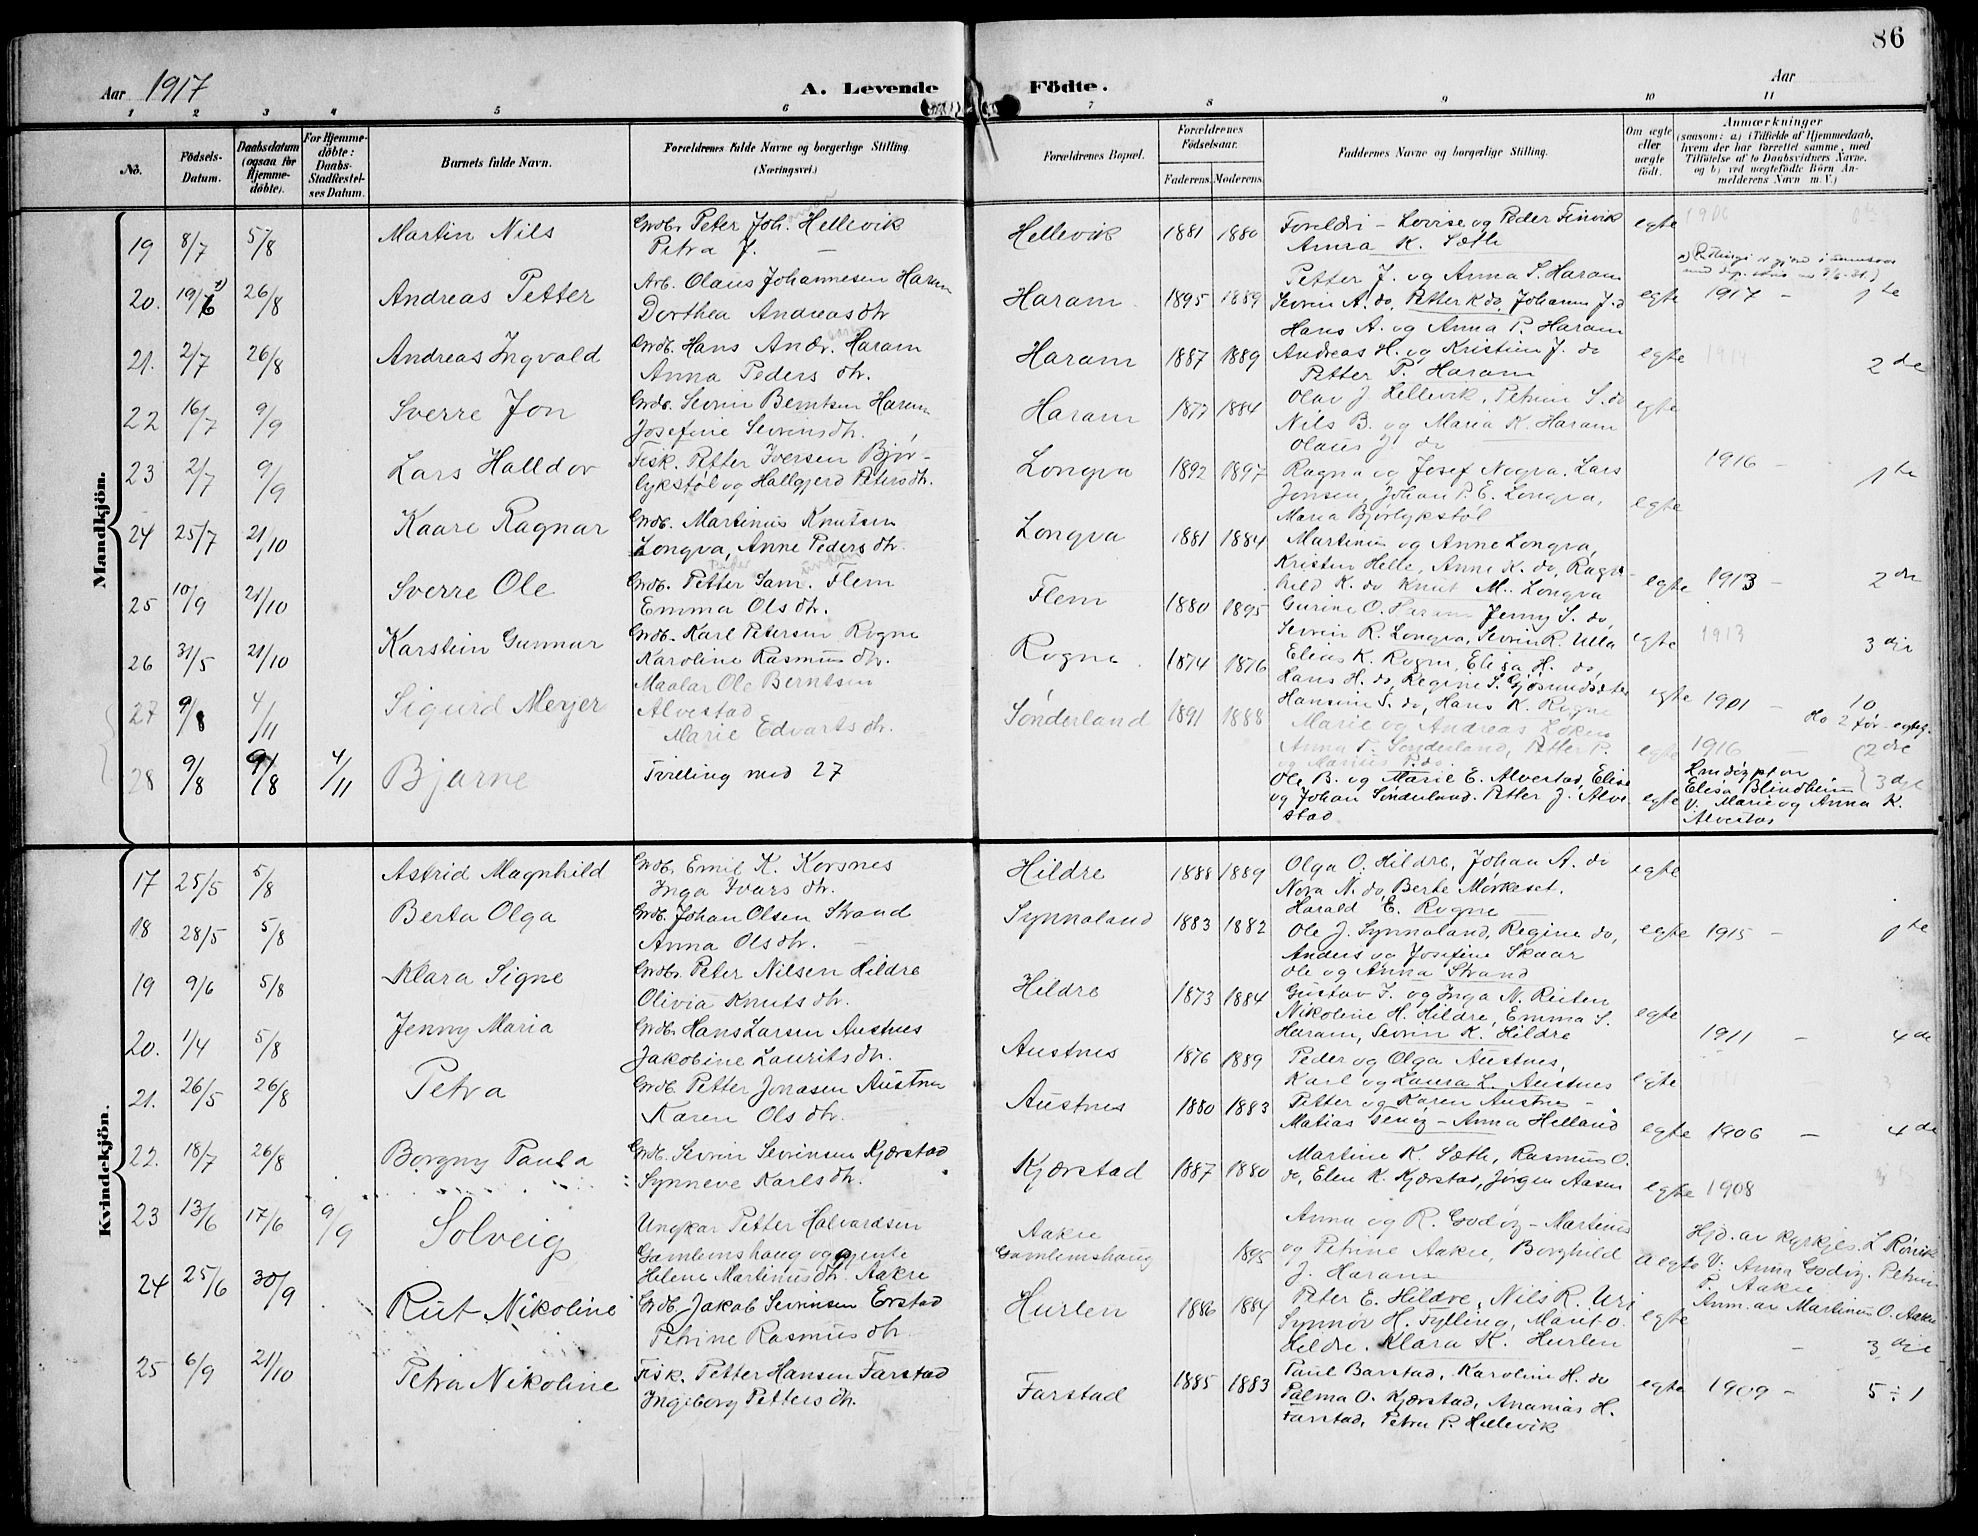 86
Aar 1917
A. Levende Födte.
Aar
1 2 3 4 5 6 7 8 9 10 11
No.
Födsels-Datum.
Daabsdatum (ogsaa for Hjemme-döbte).
For Hjemme-döbte: Daabs-Stadfæstel-ses Datum.
Barnets fulde Navn.
Forældrenes fulde Navne og borgerlige Stilling (Næringsvei.)
Forældrenes Bopæl.
Forældrenes Födselsaar.
Faderens. Moderens.
Faddernes Navne og borgerlige Stilling.
Om ægte eller uægte födt.
Anmærkninger
(saasom: a) i Tilfælde af Hjemmedaab, hvem der har forrettet samme, med Tilföielse af to Daabsvidners Navne. og b) ved uægtefödte Börn Anmelderens Navn m. V.)
Mandkjön.
19 8/7 5/8 Martin Nils
Grdb. Peter Joh. Hellevik
Petra J. —
Hellevik 1881 1880
Foreldri – Lovise og Peder Finvik
Anna K. Sæth
egte
20. 26/8 Andreas Petter
Arb. Olaus Johannesen Haram
Dorthea Andreasdtr
Haram 1895 1889
Petter J. og Anna S. Haram
Sevrin A. do, Petter K do, Johannes J. d
egte 1917 – 1te
21. 2/7 26/8 Andreas Ingvald
Grdb. Hans Andr. Haram
Anna Peders dtr.
Haram 1887 1889
Hans A. og Anna P. Haram
Andreas H. og Kristine J. do
Petter P. Haram
egte 2de
22 16/7 9/9 Sverre Jon
Grdb. Sevrin Berntsen Haram
Josefine Sevrinsdtr.
Haram 1877 1884
Olav J Hellevik, Petrine S. do
Nils B. og Maria K. Haram
Olaus J. do
egte
23 2/7 9/9 Lars Halldor
Fisk. Petter Iversen Bjør-
lykstøl og Hallgjerd Petersdtr.
Longva 1892 1897
Ragna og Josef Nogva. Lars
Jonsen, Johan P. E. Longva,
Maria Bjørlykstøl
egte 1916 – 1te
24 25/7 21/10 Kaare Ragnar
Grdb. Martinus Knutsen
Longva, Anne Peders dtr.
Longva 1881 1884
Martinus og Anne Longva,
Kristen Helle, Anne K. do, Ragn-
hild K. do Knut M. Longva
egte 1913 – 2de
25 10/9 21/10 Sverre Ole
Grdb. Petter Sam. Flem
Emma Ols dtr.
Flem 1880 1895
Gurine O. Haram Jenny S. do,
Sevrin R. Longva, Sevrin R. Ulla
egte 1913 3die
26 31/5 21/10 Karstein Gunnar
Grdb. Karl Petersen Rogne
Karoline Rasmus dtr.
Rogne 1874 1876
Elias K. Rogne, Elisa H. do,
Hans H. do, Regine S. Gjøsundsæter
Hansine S. do, Hans K. Rogne
egte 1901 – 10
27 9/8 4/11 Sigurd Meyer
Maalar Ole Berntsen
Alvestad
Marie Edvarts dtr.
Sønderland 1891 1888
Marie og Andreas Løken
Anna P. Sønderland, Petter P.
og Marius P. do.
egte 1916 2dre
28 9/8 9/8 4/11 Bjarne
Tvilling med 27
Ole B. og Marie E. Alvestad, Elise
og Johan Sønderland. Petter J. Alve-
stad
egte
Elisa Blindheim
V. Marie og Anna K.
Alvestad
3dje
Kvindekjön.
17 25/5 5/8 Astrid Magnhild
Grdb. Emil K. Korsnes
Inga Ivars dtr.
Hildre 1888 1889
Olga O. Hildre, Johan A. do
Nora N. do, Berte Mørkeset.
Harald E. Rogne
egte
18 28/5 5/8 Berta Olga
Grdb. Johan Olsen Strand
Anna Ols dtr.
Synnaland 1883 1882
Ole J. Synnaland, Regine do,
Anders og Josefine Skaar
Ole og Anna Strand
egte 1915 – 1te
19 9/6 5/8 Klara Signe
Grdbr. Peter Nilsen Hildre
Olivia Knuts dtr.
Hildre 1873 1884
Gustav J. og Inga N. Reiten
Nikoline H. Hildre, Emma S.
Haram, Sevrin K. Hildre
egte
20. 1/4 5/8 Jenny Maria
Grdb. Hans Larsen Austnes
Jakobine Laurits dtr.
Austnes 1876 1889
Peder og Olga Austnes,
Karl og Laura L. Austnes
egte 1911 – 4de
21. 26/5 26/8 Petra
Grdb. Petter Jonasen Austnes
Karen Ols dtr.
Austnes 1880 1883
Petter og Karen Austnes –
Matias – Anna Helland
egte 1906 – 4de
22. 18/7 26/8 Borgny Paula
Grdb. Sevrin Sevrinsen Kjærstad
Synneve Karls dtr.
Kjærstad 1887 1880
Martine K. Sæth, Rasmus O.
do, Elen K. Kjærstad, Jørgen Aasen
egte 1908
23 13/6 17/6 9/9 Solveig
Ungkar Petter Halvardsen
Gamlemshaug og gjente
Helene Martinus dtr. Aakre
Aakre
Gamlemshaug 1895
Anna og R. Godøy – Martinus
og Petrine Aakre, Borghild
J. Haram
uegte
Hjd. av kyrkjes. L Rønvik
V: Anna Godøy. Petrine
P. Aakre
Anm. av Martinus O. Aakre
24 25/6 30/9 Rut Nikoline
Grdb. Jakob Sevrinsen Erstad
Petrine Rasmus dtr
Hurlen 1886 1884
Peter E. Hildre, Nils R. Uri
Synnøv H. Fylling, Marit O.
Hildre. Klara K. Hurlen
egte – 3die
25 6/9 21/10 Petra Nikoline
Fisk. Petter Hansen Farstad
Ingeborg Petters dtr.
Farstad 1885 1883
Paul Barstad, Karoline H. do
Palma O. Kjærstad, Ananias H.
Farstad, Petra P. Hellevik
egte 1909 – 5 ÷ 1